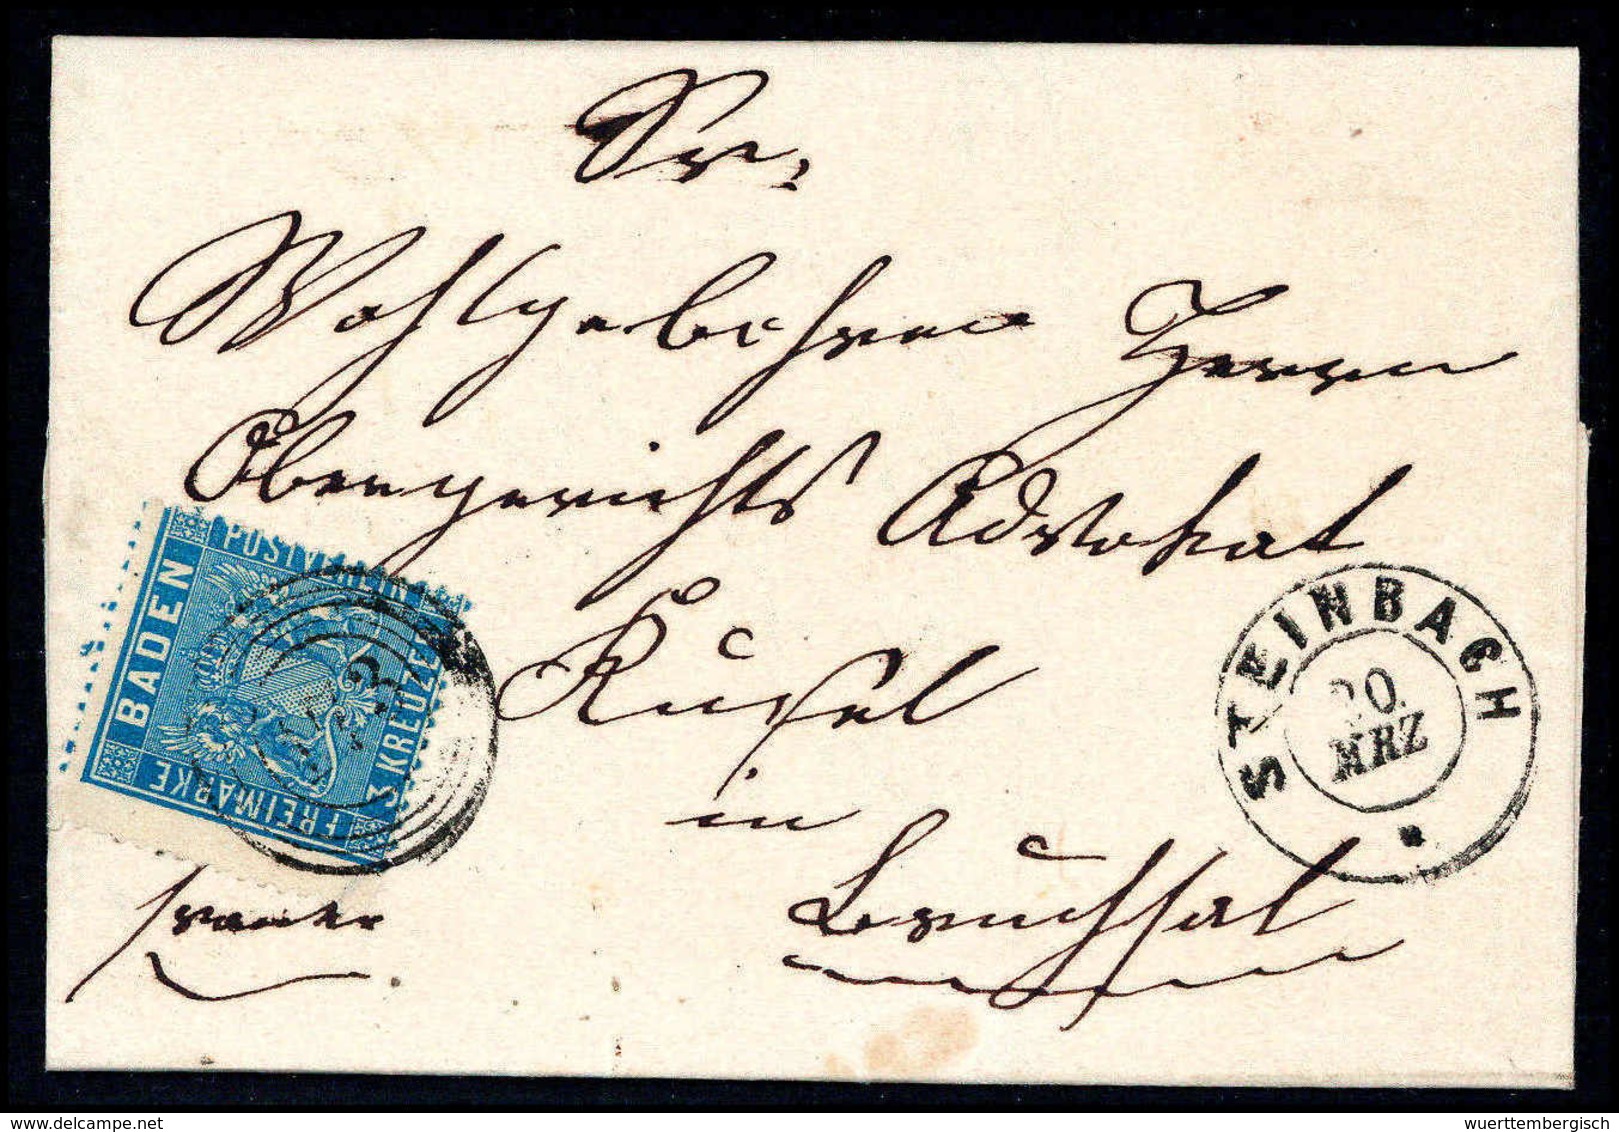 Sr.
Wohlgebohren Herrn
Obergerichts Advokat
Küsel
in
Bruchsal
franko
BADEN
POSTVEREIN
FREIMARKE
3 KREUZER
STEINBACH
20.
MRZ
delcampe.net
wuerttembergisch